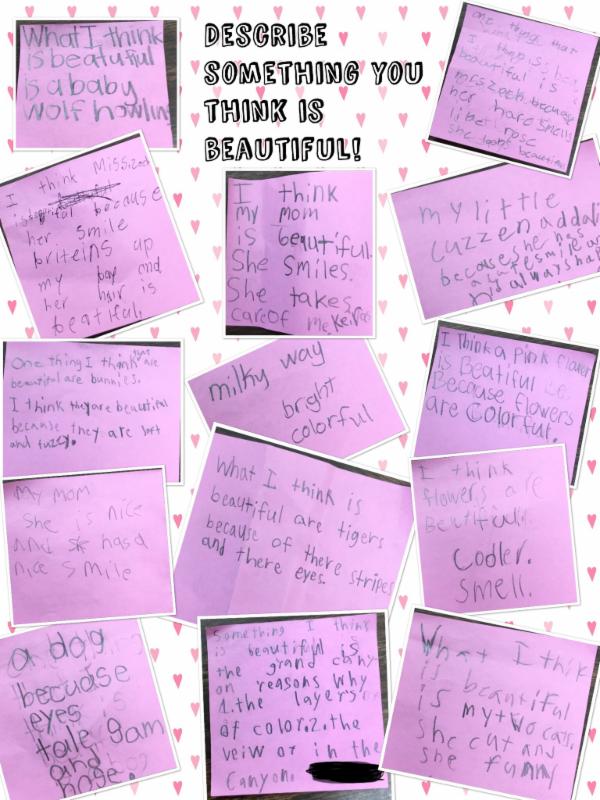 DESCRIBE
SOMETHING YOU
THINK IS
BEAUTIFUL!
What I think
is beatuful
is a baby
wolf howling
one thing that
I think is
beautiful is
mrs zech because
her hare smells
like rose
she looks beautiful
I think Misszech
is because
her smile
briteins up
my bay and
her hair is
beatiful.
I think
my mom
is beautiful.
She smiles.
She takes
care of me
my little
cuzzen addal
because she has
a cute smile
always ha
One thing I think that are
beautiful are bunnies.
I think they are beautiful
because they are soft
and fuzzy.
milky way
bright
colorful
I think a pink flower
is Beatiful
Because flowers
are colorful.
My Mom
She is nice
and she has a
nice smile
What I think is
beautiful are tigers
because of there stripes
and there eyes.
I think
flowers are
Beutifull.
codler.
smell.
a dog
becuase
eyes is
taile
and
nose.
Something I think
is beautiful is
the grand cany
on reasons why
1. the layers
of color. 2. the
veiw or in the
canyon.
What I think
is beautiful
is my two cats.
she cut and
she funny